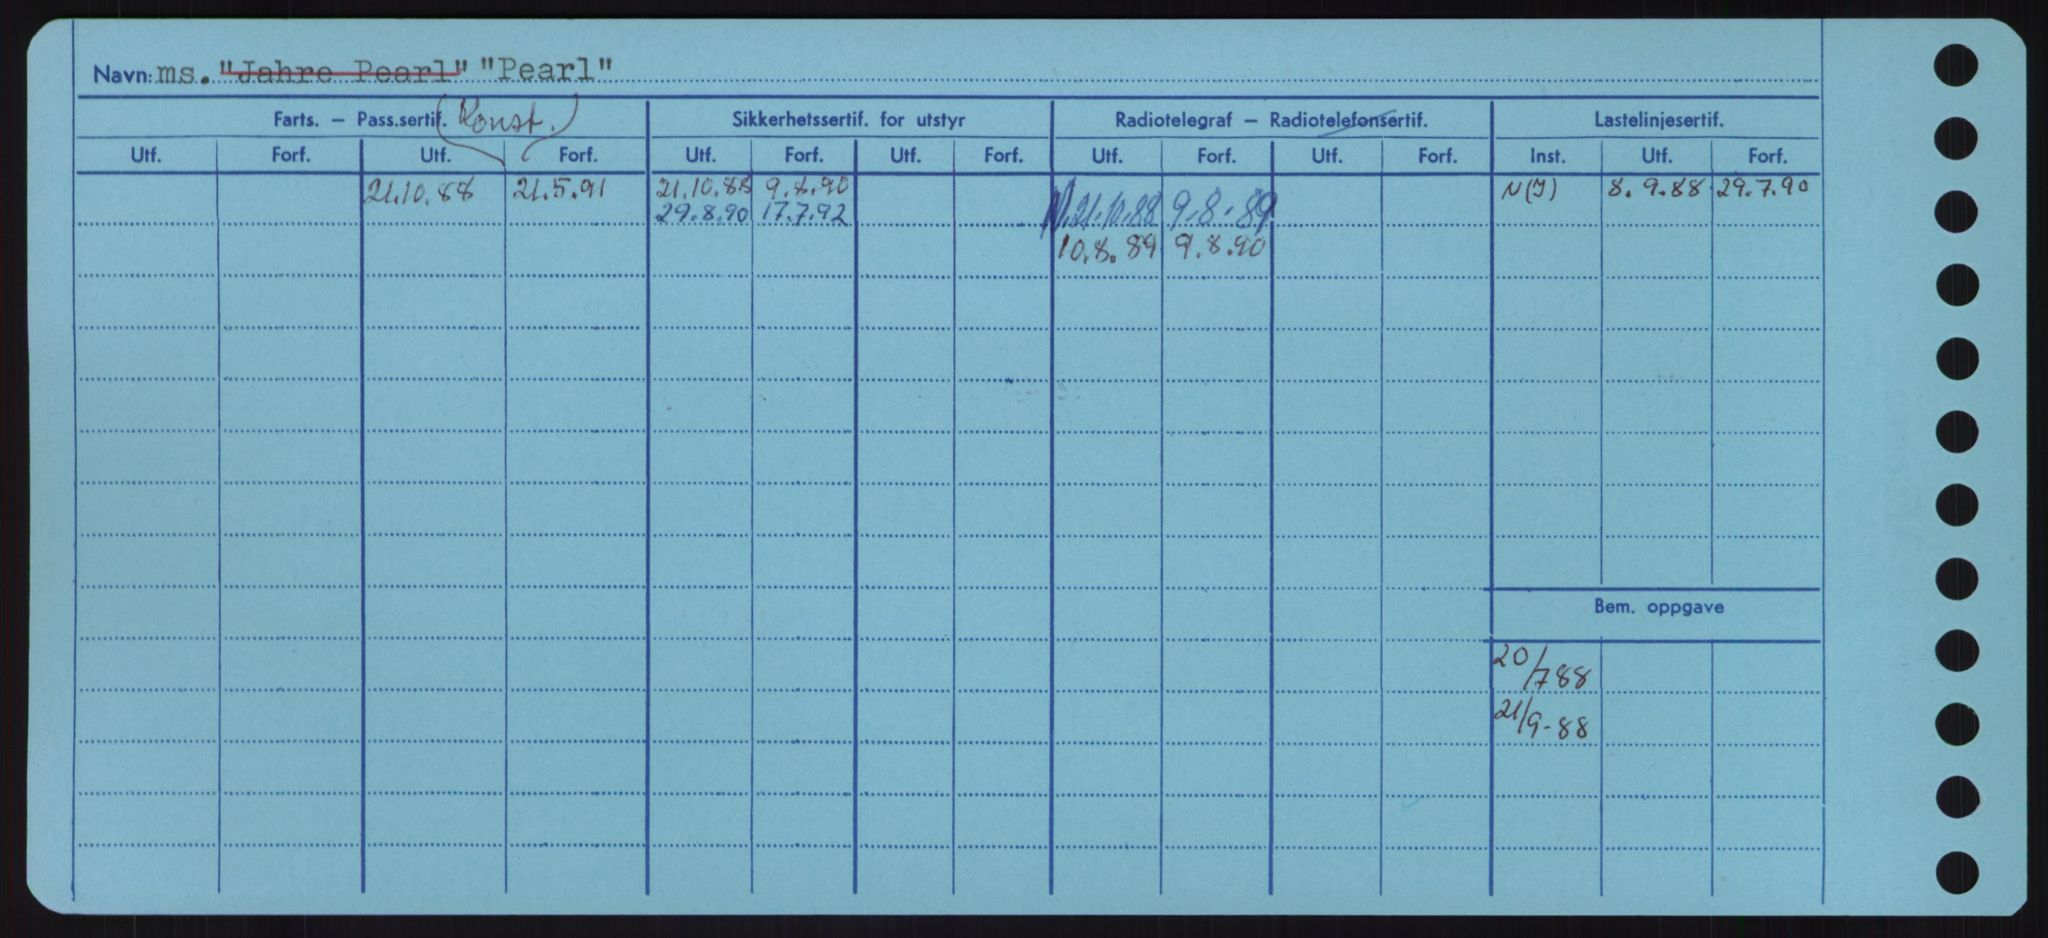 Navn: ms. "Jahre Pearl" "Pearl"
Farts. — Pass.sertif. (Konst.) Sikkerhetssertif. for utstyr Radiotelegraf — Radiotelefonsertif. Lastelinjesertif.
Utf. Forf. Utf. Forf. Utf. Forf. Utf. Forf. Utf. Forf. Utf. Forf. Inst. Utf. Forf.
21.10.88 21.5.91 21.10.88 9.8.90 N(I) 8.9.88 29.7.90
29.8.90 17.7.92 21.10.88 9-8-89
10.8.89 9.8.90
Bem. oppgave
20/788
21/9-88